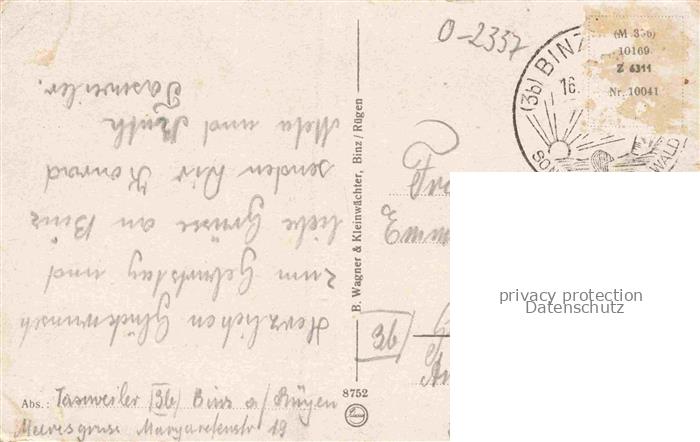 O-2337
(3b) BINZ
16.
SON
WALD
(M 366)
10169
Z 6311
Nr. 10041
Herzlichen Glückwunsch
zum Geburtstag und
liebe Grüsse an Binz
senden Dir Konrad
Meta und Ruth
Tasweiler.
B. Wagner & Kleinwächter, Binz / Rügen
3b
8752
Abs.: Tasweiler (3b) Binz a/Rügen
Meeresgruss Margaretenstr 19
privacy protection
Datenschutz